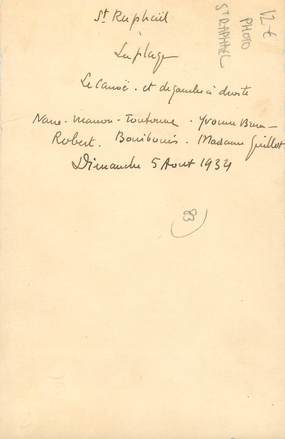 St Raphaël
La plage
Le Canoë - et de gauche à droite
Nano - Manon - Toutoune - Yvonne
Robert. Bouibouis - Madame Guillot
Dimanche 5 Aout 1934
83
12 €
PHOTO
ST RAPHAEL